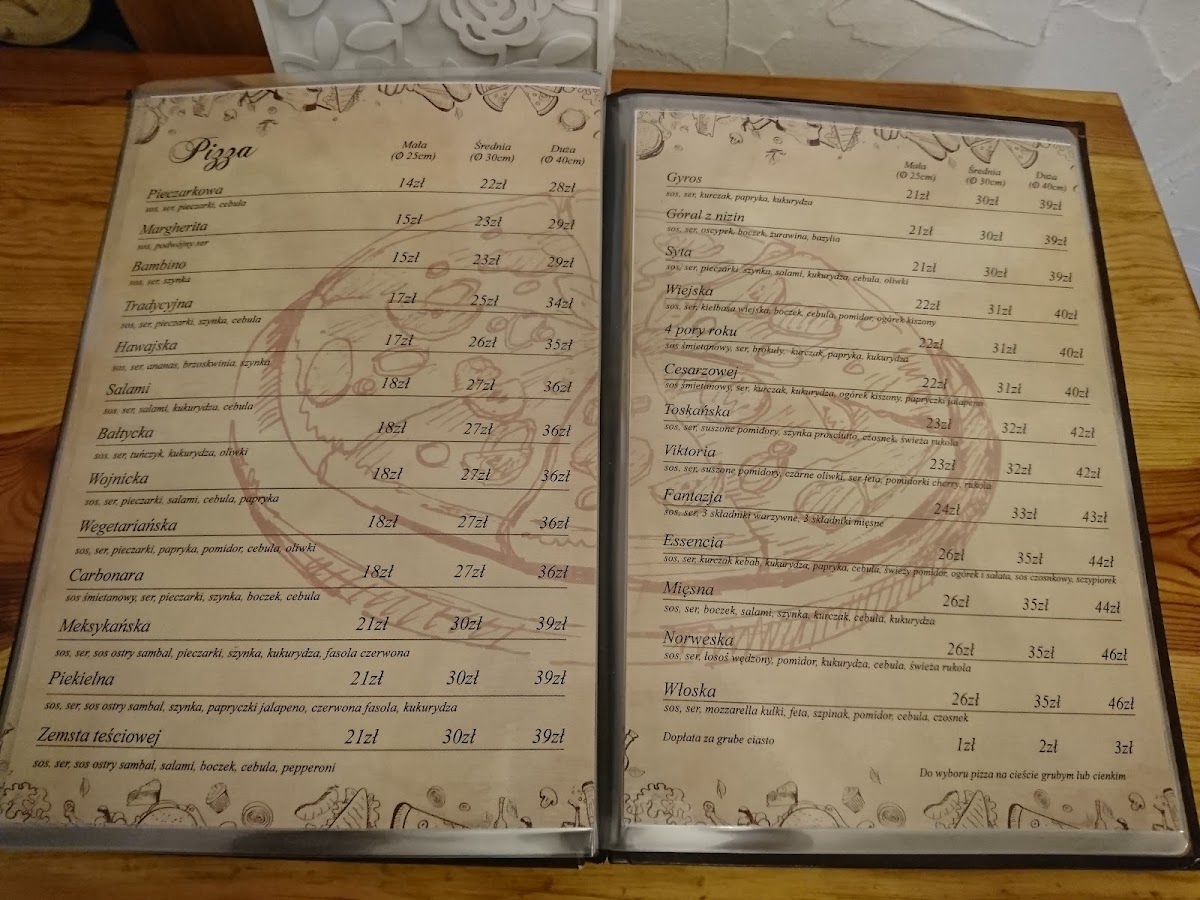 Pizza
Mała Średnia Duża
(Ø 25cm) (Ø 30cm) (Ø 40cm)
Pieczarkowa 14zł 22zł 28zł
sos, ser, pieczarki, cebula
Margherita 15zł 23zł 29zł
sos, podwójny ser
Bambino 15zł 23zł 29zł
sos, ser, szynka
Tradycyjna 17zł 25zł 34zł
sos, ser, pieczarki, szynka, cebula
Hawajska 17zł 26zł 35zł
sos, ser, ananas, brzoskwinia, szynka
Salami 18zł 27zł 36zł
sos, ser, salami, kukurydza, cebula
Bałtycka 18zł 27zł 36zł
sos, ser, tuńczyk, kukurydza, oliwki
Wojnicka 18zł 27zł 36zł
sos, ser, pieczarki, salami, cebula, papryka
Wegetariańska 18zł 27zł 36zł
sos, ser, pieczarki, papryka, pomidor, cebula, oliwki
Carbonara 18zł 27zł 36zł
sos śmietanowy, ser, pieczarki, szynka, boczek, cebula
Meksykańska 21zł 30zł 39zł
sos, ser, sos ostry sambal, pieczarki, szynka, kukurydza, fasola czerwona
Piekielna 21zł 30zł 39zł
sos, ser, sos ostry sambal, szynka, papryczki jalapeno, czerwona fasola, kukurydza
Zemsta teściowej 21zł 30zł 39zł
sos, ser, sos ostry sambal, salami, boczek, cebula, pepperoni
Mała Średnia Duża
(Ø 25cm) (Ø 30cm) (Ø 40cm)
Gyros 21zł 30zł 39zł
sos, ser, kurczak, papryka, kukurydza
Góral z nizin 21zł 30zł 39zł
sos, ser, oscypek, boczek, żurawina, bazylia
Syta 21zł 30zł 39zł
sos, ser, pieczarki, szynka, salami, kukurydza, cebula, oliwki
Wiejska 22zł 31zł 40zł
sos, ser, kiełbasa wiejska, boczek, cebula, pomidor, ogórek kiszony
4 pory roku 22zł 31zł 40zł
sos śmietanowy, ser, brokuły, kurczak, papryka, kukurydza
Cesarzowej 22zł 31zł 40zł
sos śmietanowy, ser, kurczak, kukurydza, ogórek kiszony, papryczki jalapeno
Toskańska 23zł 32zł 42zł
sos, ser, suszone pomidory, szynka prosciutto, czosnek, świeża rukola
Viktoria 23zł 32zł 42zł
sos, ser, suszone pomidory, czarne oliwki, ser feta, pomidorki cherry, rukola
Fantazja 24zł 33zł 43zł
sos, ser, 3 składniki warzywne, 3 składniki mięsne
Essencia 26zł 35zł 44zł
sos, ser, kurczak kebab, kukurydza, papryka, cebula, świeży pomidor, ogórek i sałata, sos czosnkowy, sczypiorek
Mięsna 26zł 35zł 44zł
sos, ser, boczek, salami, szynka, kurczak, cebula, kukurydza
Norweska 26zł 35zł 46zł
sos, ser, łosoś wędzony, pomidor, kukurydza, cebula, świeża rukola
Włoska 26zł 35zł 46zł
sos, ser, mozzarella kulki, feta, szpinak, pomidor, cebula, czosnek
Dopłata za grube ciasto 1zł 2zł 3zł
Do wyboru pizza na cieście grubym lub cienkim